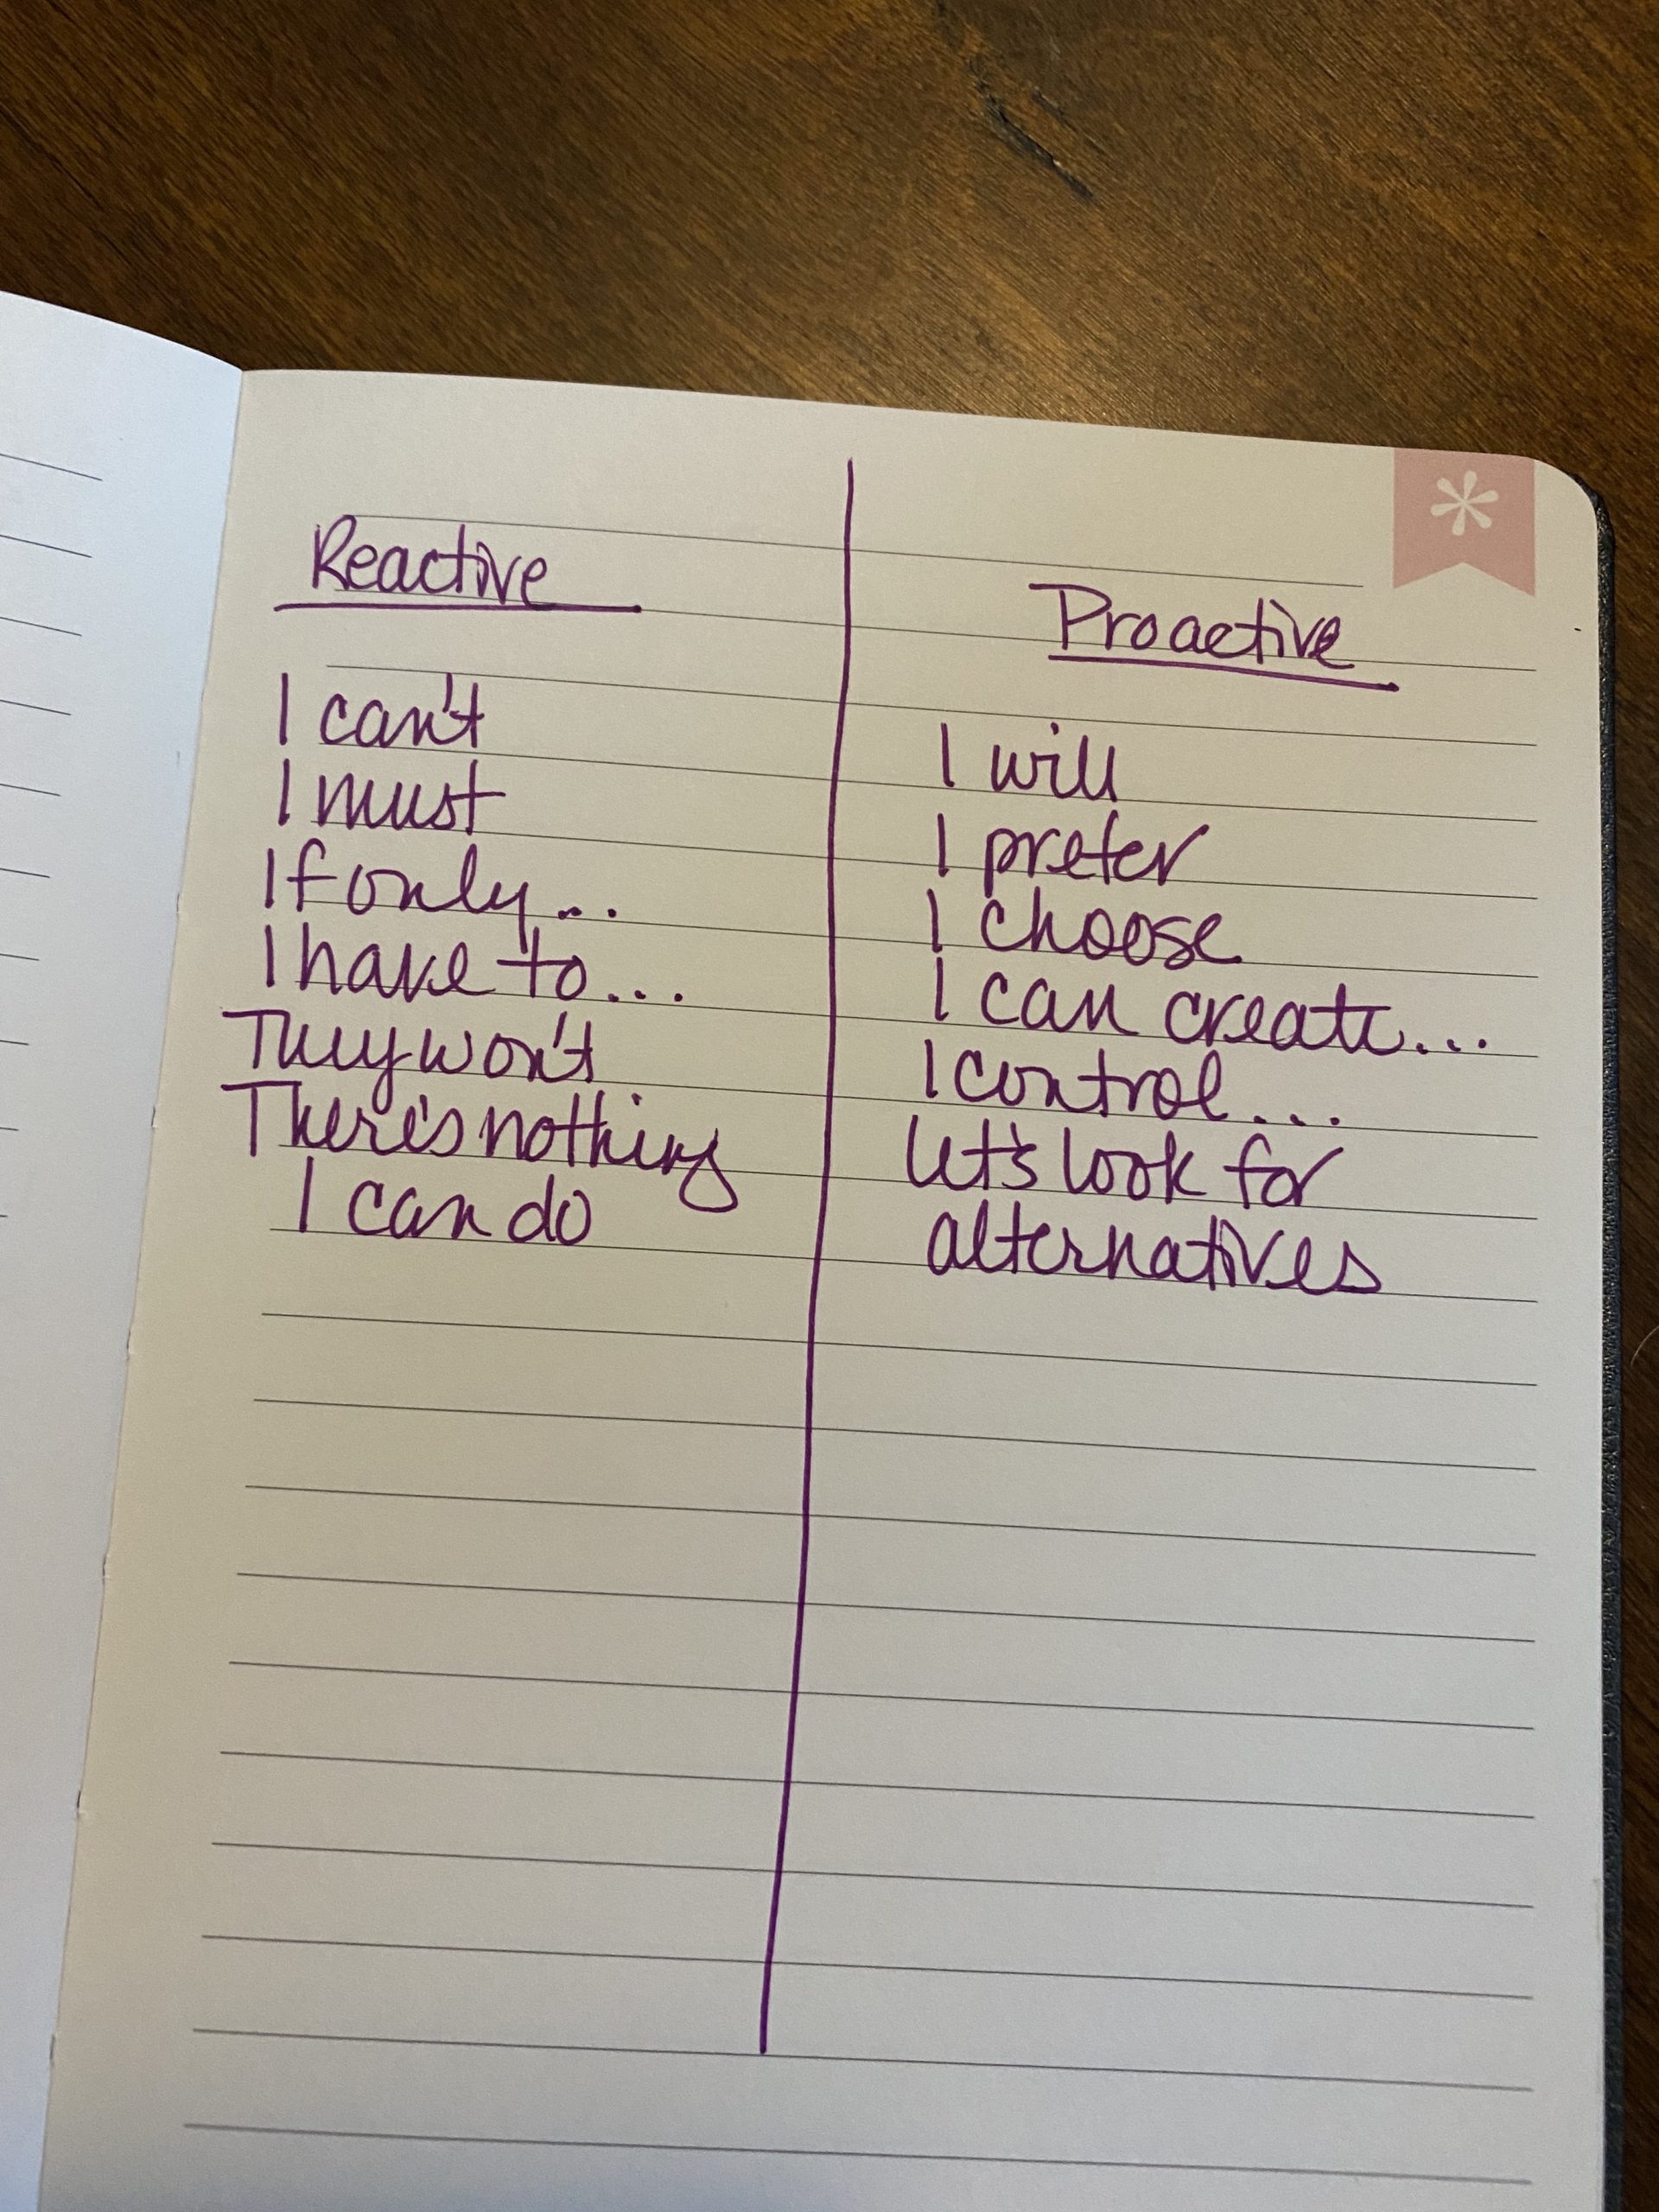 Reactive
I can't
I must
If only...
I have to...
They won't
There's nothing
I can do
Proactive
I will
I prefer
I choose
I can create...
I control...
Let's look for
alternatives